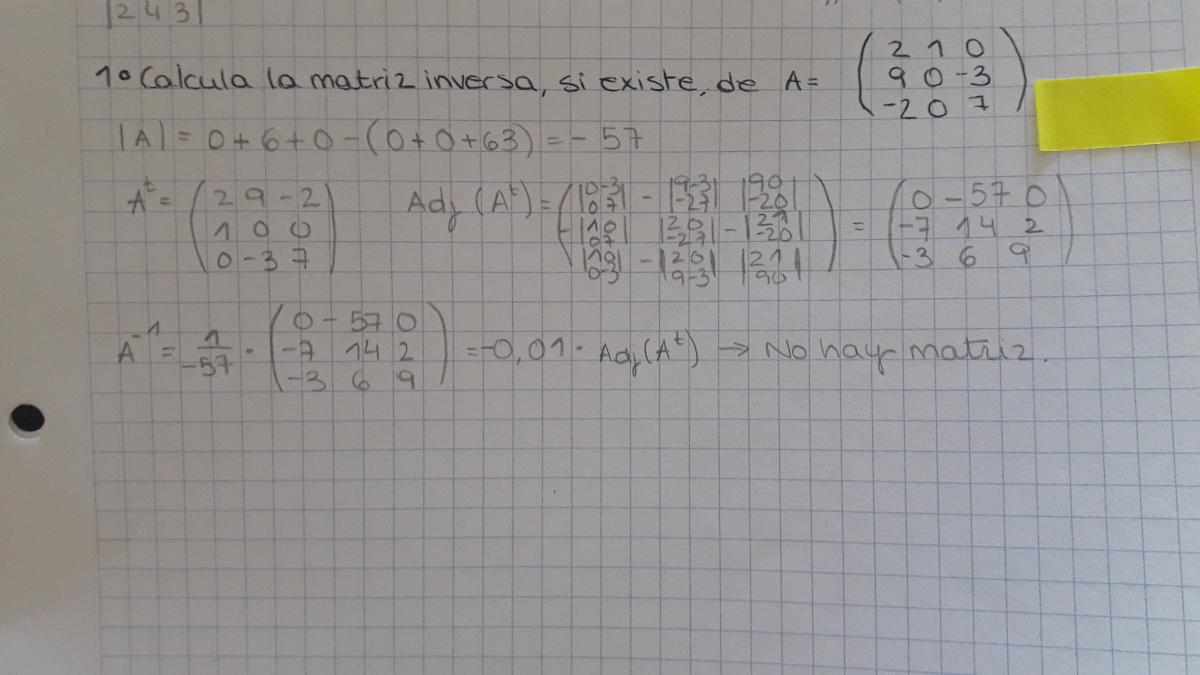 |2 4 3|
1º Calcula la matriz inversa, si existe, de A= (2 1 0
9 0 -3
-2 0 7)
|A| = 0+6+0-(0+0+63) = -57
Aᵗ= (2 9 -2
1 0 0
0 -3 7)
Adj (Aᵗ)= (|0 -3
0 7| -|9 -3
-2 7| |9 0
-2 0|
-|1 0
0 7| |2 0
-2 7| -|2 1
-2 0|
|1 0
0 -3| -|2 0
9 -3| |2 1
9 0|) = (0 -57 0
-7 14 2
-3 6 9)
A⁻¹= 1/-57 · (0 -57 0
-7 14 2
-3 6 9) = -0,01 · Adj(Aᵗ) → No hay matriz.